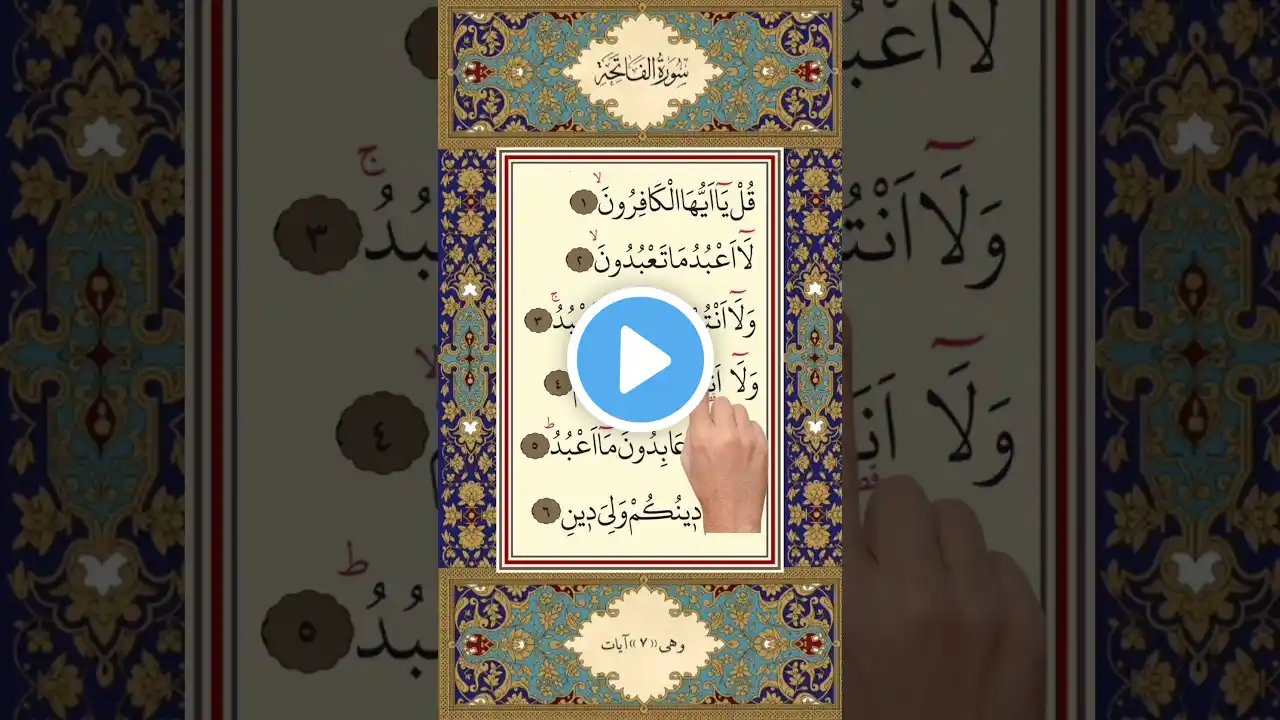 سُورَةُ الْفَاتِحَةِ
قُلْ يَٓا اَيُّهَا الْكَافِرُونَۙ ﴿١﴾
لَٓا اَعْبُدُ مَا تَعْبُدُونَۙ ﴿٢﴾
وَلَٓا اَعْبُدُۚ ﴿٣﴾
وَلَٓا ﴿٤﴾
عَابِدُونَ مَٓا اَعْبُدُۜ ﴿٥﴾
دِينُكُمْ وَلِيَ دِينِ ﴿٦﴾
وهى «٧» آيات